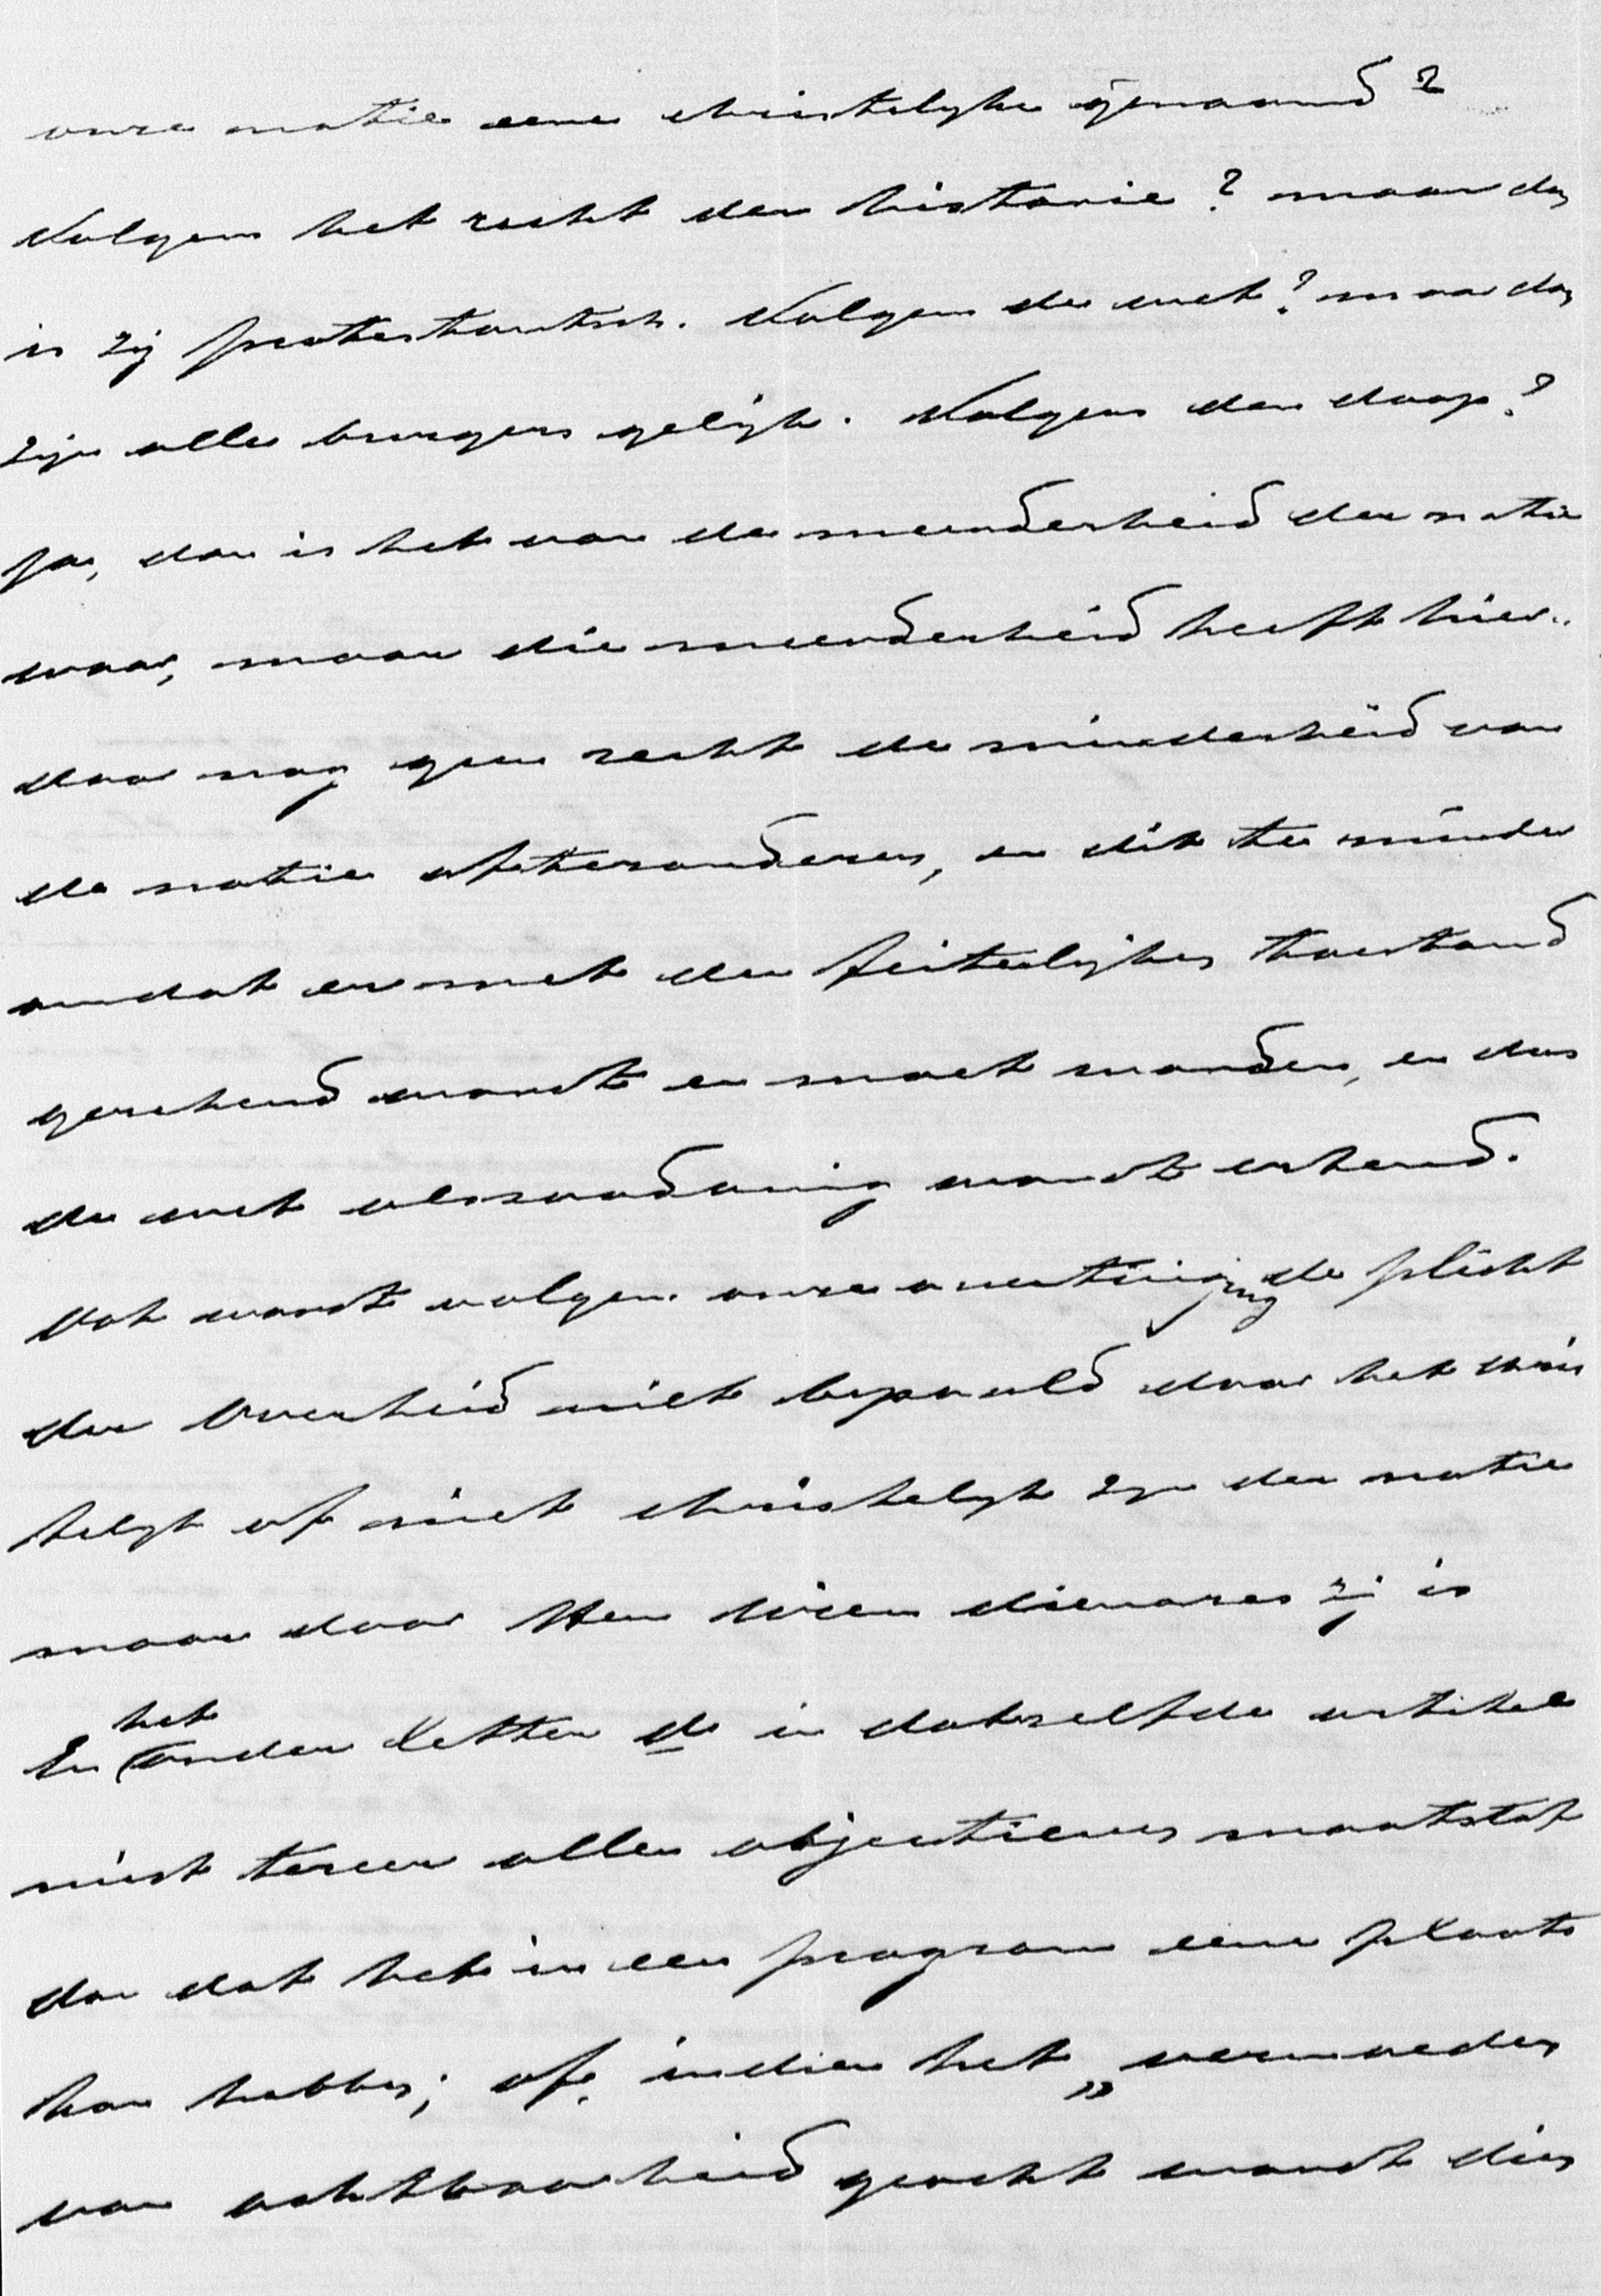 onze natie eene christelyke genaamd?
Volgens het recht der historie? maar dan
is zij protestantsch. Volgens de wet? maar dan
zijn alle burgers gelijk. Volgens den doop?
Ja, dan is het van de meerderheid der natie
waar, maar die meerderheid heeft hier..
door nog geen recht de minderheid van
de natie uittezonderen, en dit te minder
omdat er met den feitelijken toestand
gerekend wordt en moet worden, en dus
de wet als zoodanig wordt erkend.
Ook wordt volgens onze overtuiging de plicht
der Overheid niet bepaald door het chris
telyk of niet christelyk zyn der natie
maar door Hem Wiens dienares zij is
En het onder letter d in datzelfde artikel
mist te zeer allen objectieven maatstaf
dan dat het in een program eene plaats
kan hebben; of, indien het „vermoeden
van achtbaarheid geacht wordt dien